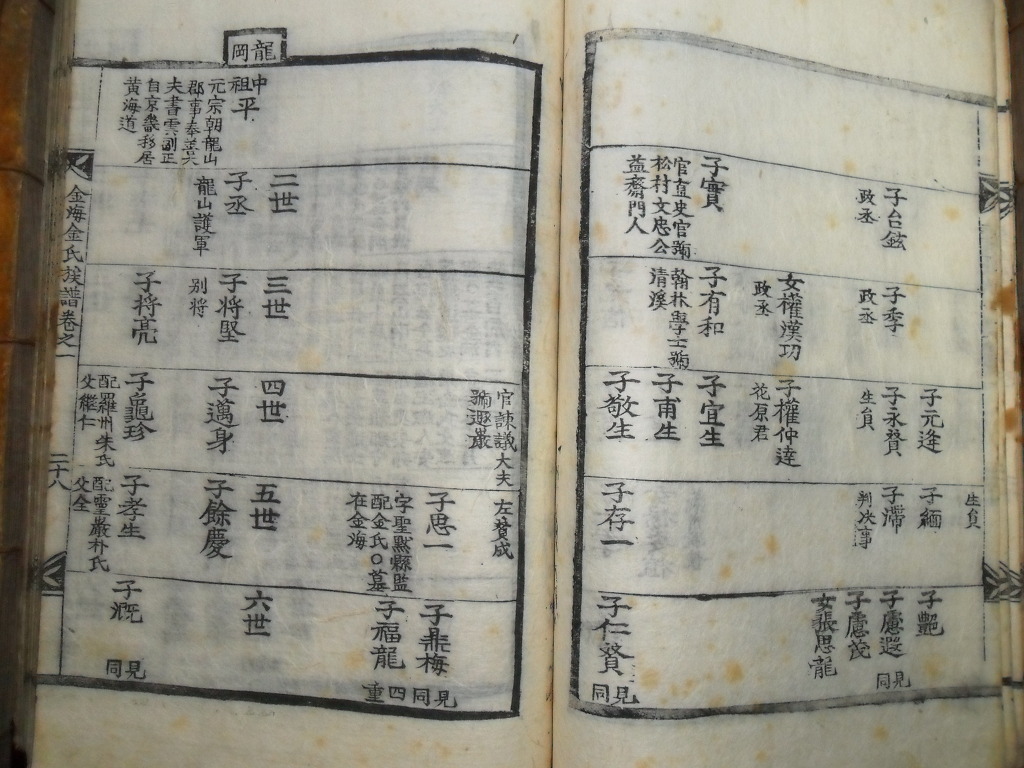 子台鉉
政丞
子實
官直史官號
松村文忠公
益齋門人
子季
政丞
女權漢功
政丞
子有和
翰林學士號
清溪
子元
子永贊
生負
子權仲達
花原君
子宜生
子甫生
子敬生
生負
子緬
子滯
判决事
子存一
子艷
子慮遐
見同
子慮茂
女張思龍
子仁贒
見同
龍岡
中祖平
元宗朝龍山
郡事奉善大
夫書雲副正
自京畿移居
黄海道
二世
子丞
龍山護軍
三世
子将堅
别將
子将亮
官諫議大夫
號遯巖
四世
子邁身
子龜珍
配羅州朱氏
父繼仁
左贊成
子思一
字聖默縣監
配金氏○墓
在金海
五世
子餘慶
子孝生
配靈巖朴氏
父全
子鼎梅
見同
子福龍
四重
六世
子溉
見同
金海金氏族譜卷之一
二十八